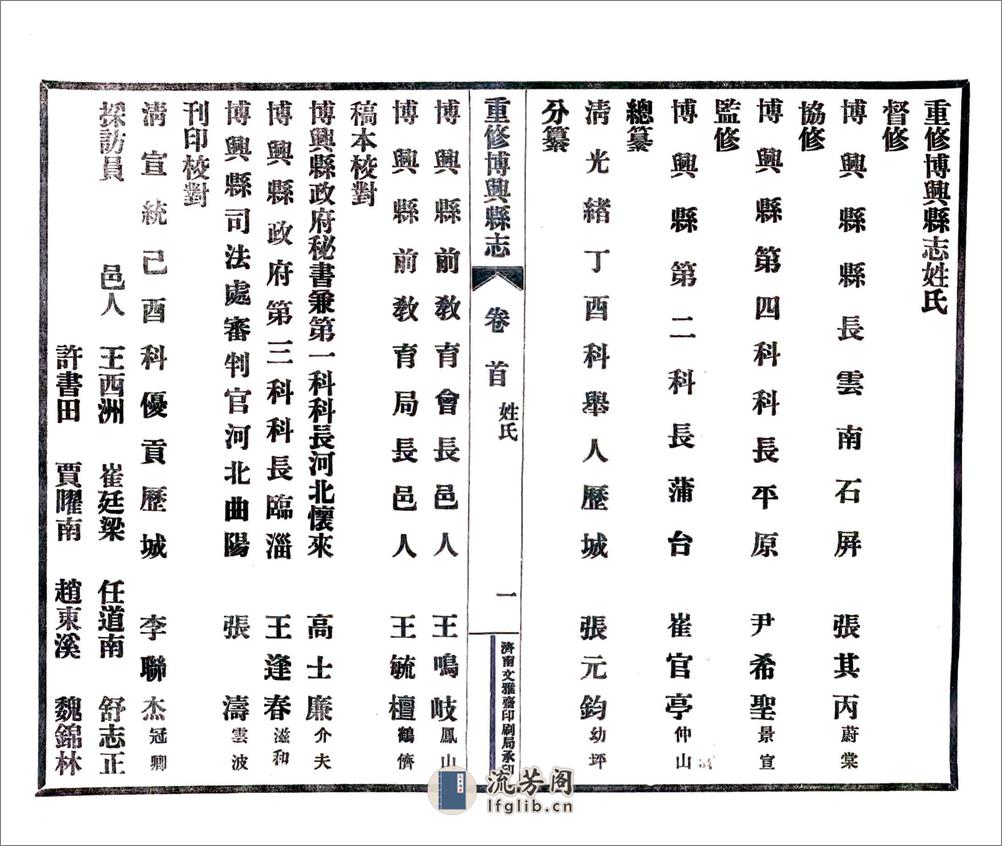 重修博興縣志姓氏
督修
博興縣縣長雲南石屛　張其丙蔚棠
協修
博興縣第四科科長平原　尹希聖景宣
監修
博興縣第二科長蒲台　崔官亭仲山
總纂
淸光緒丁酉科舉人歷城　張元鈞幼坪
分纂
重修博興縣志　卷首　姓氏　一　濟南文雅齋印刷局承印
博興縣前敎育會長邑人　王鳴岐鳳山
博興縣前敎育局長邑人　王毓檀鶴儕
稿本校對
博興縣政府秘書兼第一科科長河北懷來　高士廉介夫
博興縣政府第三科科長臨淄　王逢春滋和
博興縣司法處審判官河北曲陽　張濤雲波
刊印校對
淸宣統己酉科優貢歷城　李聯杰冠卿
採訪員　邑人　王西洲　崔廷梁　任道南　舒志正
許書田　賈曜南　趙東溪　魏錦林
流芳阁
lfglib.cn